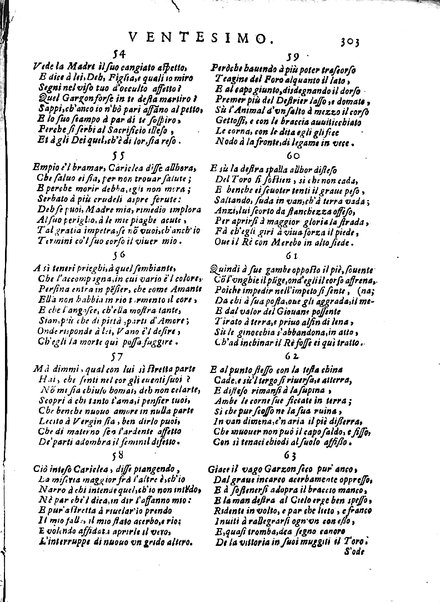 VENTESIMO. 303
54
Vede la Madre il suo cangiato aspetto,
E dice à lei, Deh, Figlia, e quali io miro
Segni nel viso tuo d'occulto affetto?
Quel Garzon forse in te desta martiro?
Sappi, ch'anco io n'hò pari affanno al petto,
E lo suo scampo à par di te sospiro,
Perche si serbi al Sacrificio illeso,
Et à gli Dei quel, ch'è di lor, sia reso.
55
Empio è'l bramar, Cariclea disse allhora,
Che saluo ei sia, per non trouar salute;
E perche morir debba, egli non mora;
Serbato à più crudeli aspre ferute:
Deh se puoi, Madre mia, rimedio implora
Al suo periglio, à le mie piaghe acute;
Tal gratia impetra, se nò vuoi, ch'anch'io
Termini co'l suo corso il viuer mio.
56
A sì teneri prieghi, à quel sembiante,
Che l'accompagna, in cui vario è'l colore,
Persina entra in pensier, che come Amante
Ella non habbia in rio tormento il core,
E che l'angosce, ch'ella mostra tante,
Sian, più che di pietà, parti d'Amore;
Onde risponde à lei, Vano è'l desire,
Ch'egli la morte qui possa fuggire.
57
Mà dimmi, qual con lui sì stretta parte
Hai, che senti nel cor gli euenti suoi?
Nò mi sia chiuso homai, che non con arte
Scopri à chi tanto t'ama, i pensier tuoi,
Che benche nuouo amore in nulla parte
Lecito à Vergin sia, ben dirlo puoi,
Che di materno sen l'ardente affetto
De' parti adombra il feminil difetto.
58
Ciò inteso Cariclea, disse piangendo,
La miseria maggior frà l'altre è, ch'io
Narro à chi intende quel, ch'io non intèdo,
Nè par che'l dica, in dir altrui il desio:
E pur astretta à riuelar'io prendo
Il mio fallo, il mio stato acerbo, e rio;
E volendo affidata aprirle il vero,
L'interruppe di nuouo vn grido altero.
59
Peròche hauendo à più poter trascorso
Teagine del Foro alquanto il lato,
E al capo giunto, disdegnando il dorso
Premer più del Destrier lasso, e domato,
Sù l'Animal d'vn salto à mezzo il corso
Gettossi, e con le braccia auuiticchiato
Le corna, con le dita egli gli fece
Nodo à la fronte, di legame in vece.
60
E sù la destra spalla allhor disteso
Del Toro si sostien, sì che non cada,
E benche ei scuoter tenti il graue peso,
Saltando, suda in van, ch'à terra vada;
Anzi, lui scorto da stanchezza offeso,
Per aprirsi à maggior gloria la strada,
Fà ch'egli giri à viua forza il piede,
Oue il Rè con Merebo in alto siede.
61
Quindi à sue gambe opposto il piè, souente
Co'l'vnghie il pũge, ond'egli il corso affrena,
Poiche impedir nell'impeto si sente, (na;
Da chi à sua posta, oue gli aggrada, il me-
E dal valor del Giouane possente
Tirato à terra, e priuo alfin di lena,
Sù le ginocchia s'abbandona, in atto,
Ch'ad inchinar il Rè fosse ei qui tratto.
62
E al punto stesso con la testa china
Cade, e sù'l tergo si riuersa, e atterra,
E disteso rimansi à la supina;
Ambe le corna sue ficcate in terra;
Sì che pur fissone la sua ruina,
In van dimena, e'n aria il piè disserra,
Che muouer non può il capo saldo, e fisso,
Con sì tenaci chiodi al suolo affisso.
63
Giace il vago Garzon seco pur'anco,
Dal graue incarco acerbamente oppresso,
E à sostenersi adopra il braccio manco,
E la man destra al Cielo erge ben spesso,
Ridente in volto, e par che lieto, e franco
Inuiti à rallegrarsi ogn'vn con esso,
E, quasi tromba, dea segno canoro
De la vittoria in suoi muggiti il Toro;
S'ode